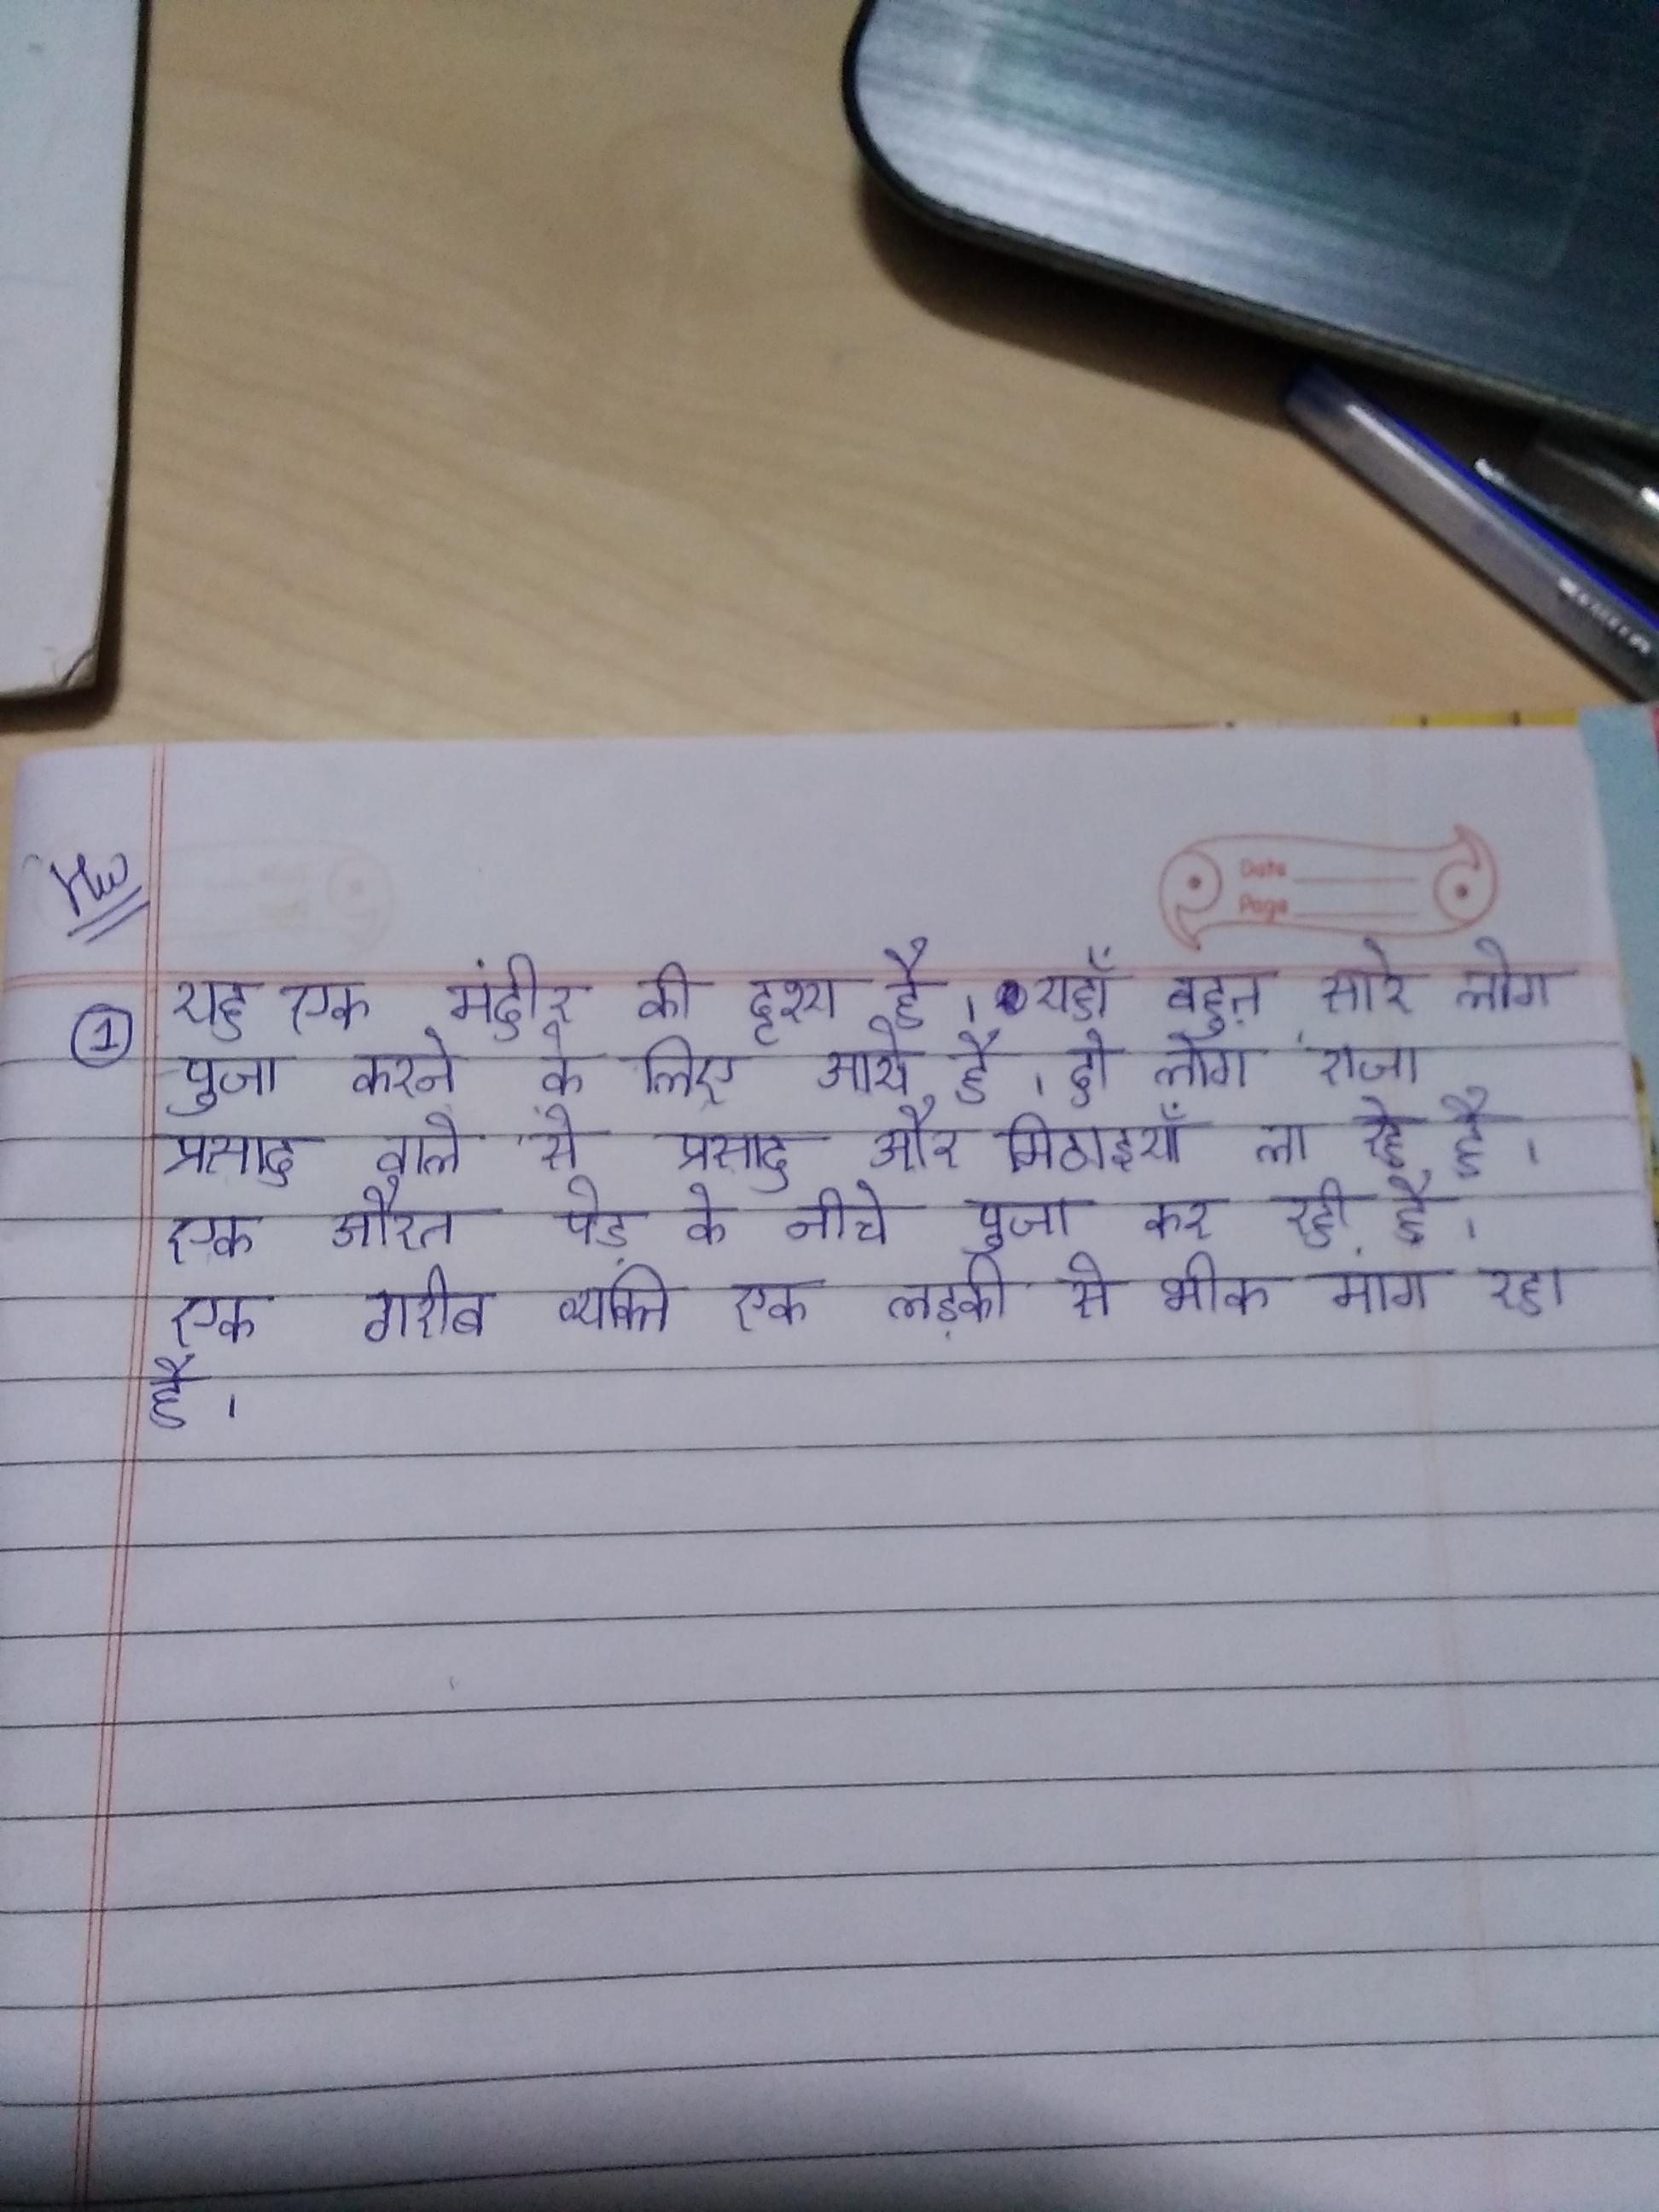 Hw
Date
Page
① यह एक मंदीर की दृश्य है । यहाँ बहुत सारे लोग
पुजा करने के लिए आये है । दो लोग राजा
प्रसाद वाले से प्रसाद और मिठाइयाँ ला रहे है ।
एक औरत पेड़ के नीचे पुजा कर रही है ।
एक गरीब व्यक्ति एक लड़की से भीक मांग रहा
है ।